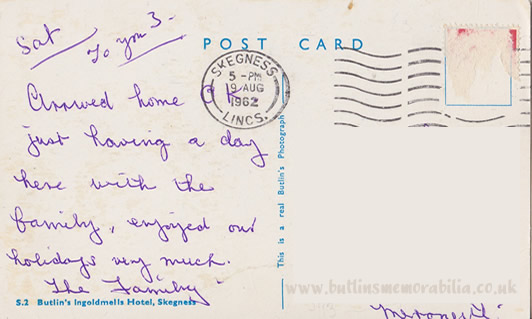 Sat
To you 3.
POST CARD
SKEGNESS
5 - PM
9 AUG
1962
LINCS.
Arrived home O.K.
just having a day
here with the
family, enjoyed our
holidays very much.
The Family
S.2 Butlin's Ingoldmells Hotel, Skegness
This is a real Butlin's Photograph
www.butlinsmemorabilia.co.uk